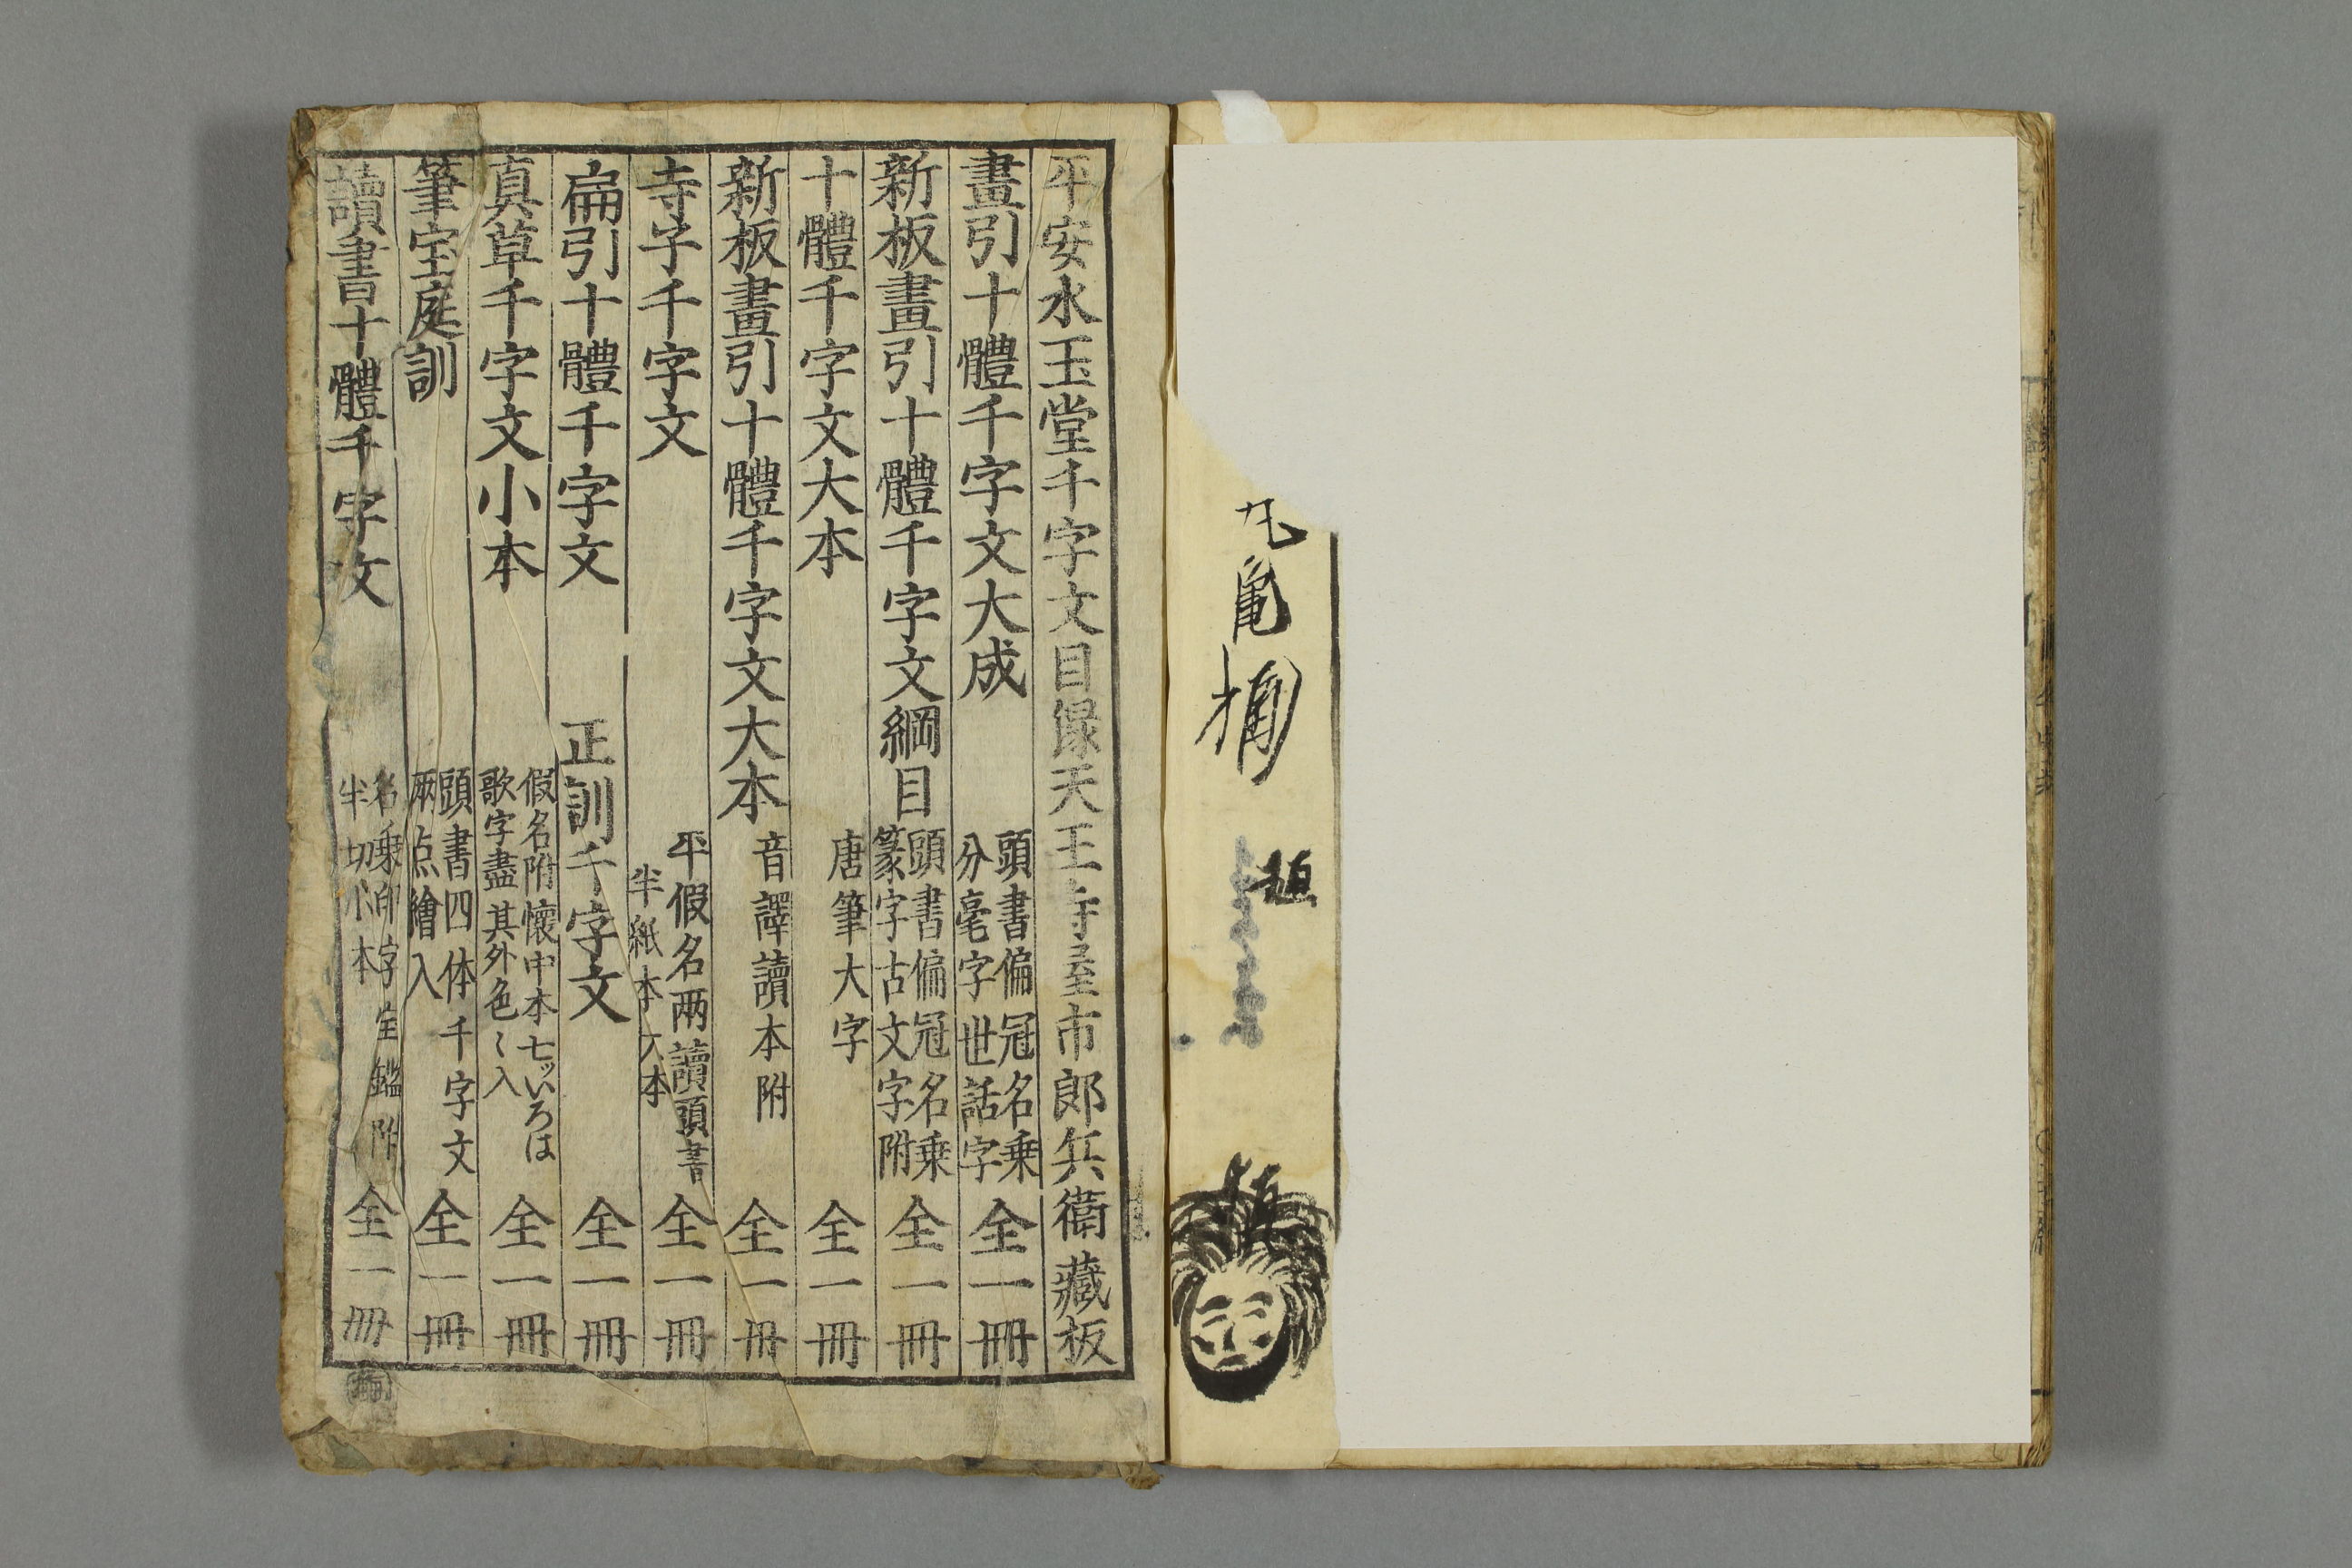 平安水玉堂千字文目録天王寺屋市郎兵衛藏板
畫引十體千字文大成
頭書偏冠名乗
分毫字世話字
全一冊
新板畫引十體千字文綱目
頭書偏冠名乗
篆字古文字附
全一冊
十體千字文大本
唐筆大字
全一冊
新板畫引十體千字文大本
音譯讀本附
全一冊
寺子千字文
平假名両讀頭書
半紙本入本
全一冊
扁引十體千字文
正訓千字文
全一冊
真草千字文小本
假名附懐中本七ッいろは
歌字盡其外色〻入
全一冊
筆宝庭訓
頭書四体千字文
兩点繪入
全一冊
讀書十體千字文
名乗印字宝鑑附
半切小本
全一冊